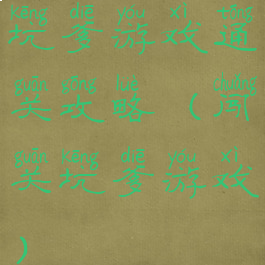 kēng diē yóu xì tōng
坑爹游戏通
guān gōng lüè chuǎng
关攻略(闯
guān kēng diē yóu xì
关坑爹游戏
)